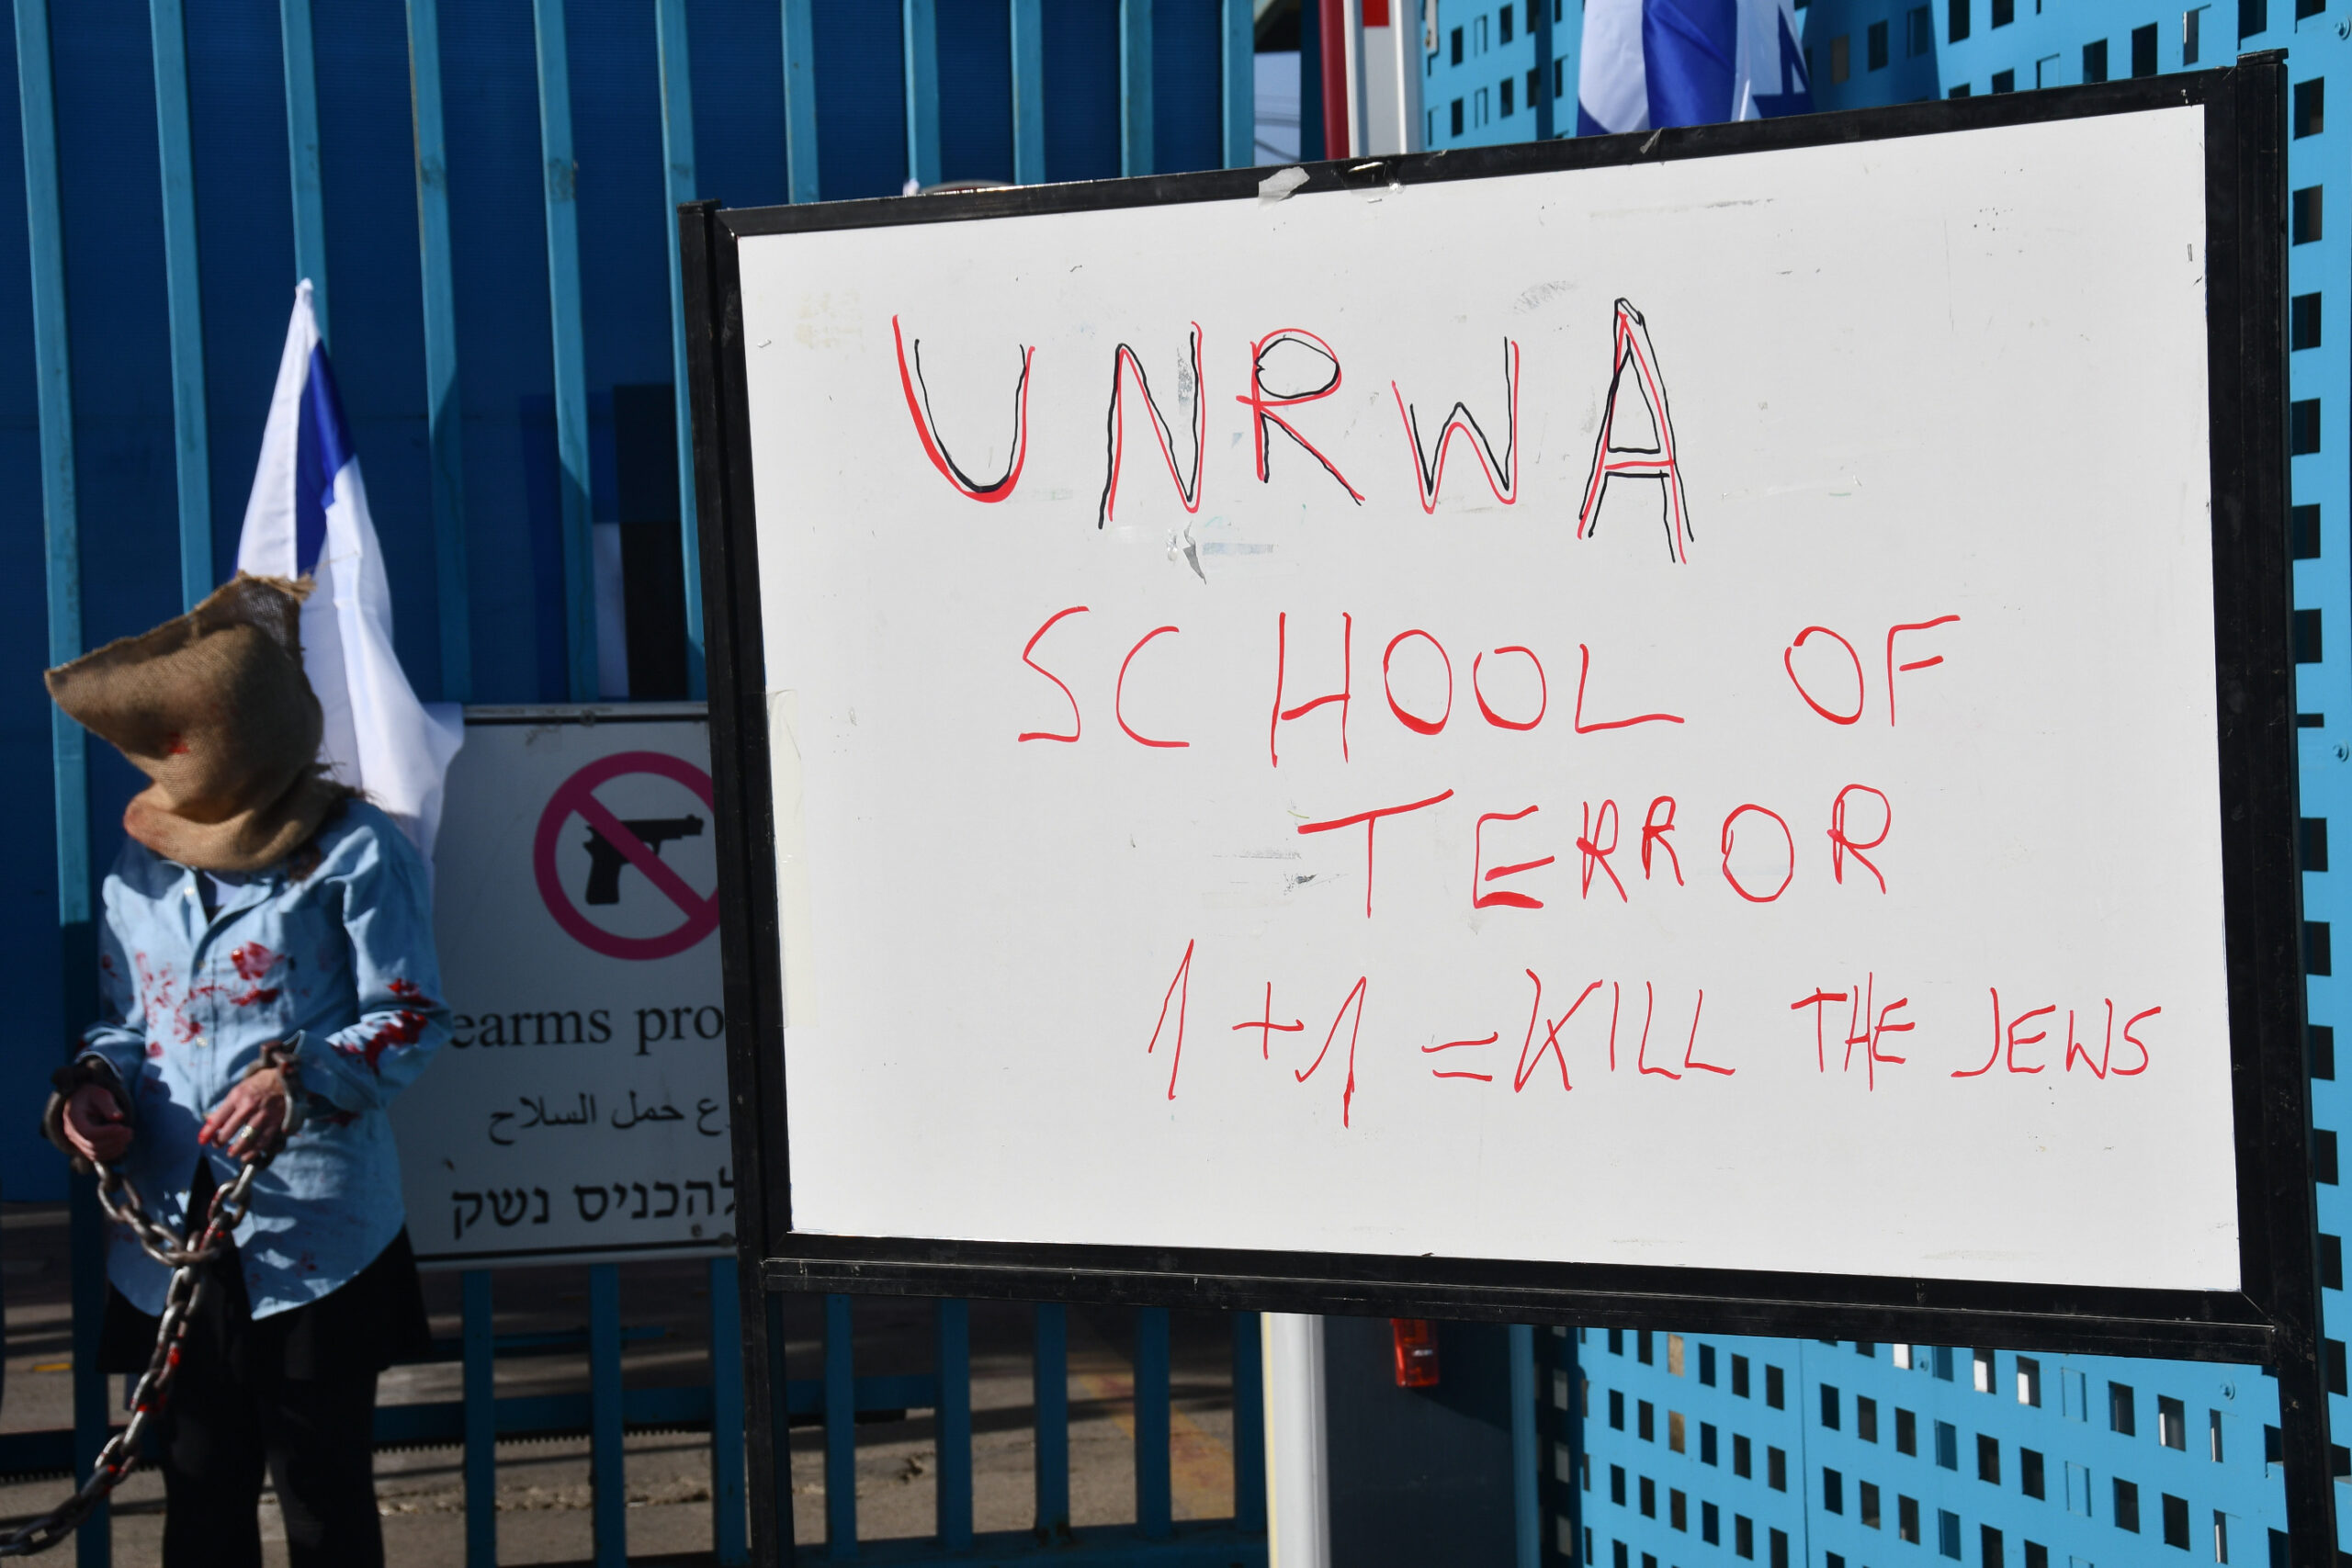 UNRWA
SCHOOL OF
TERROR
1+1=KILL THE JEWS
حمل السلاح
להכניס נשק